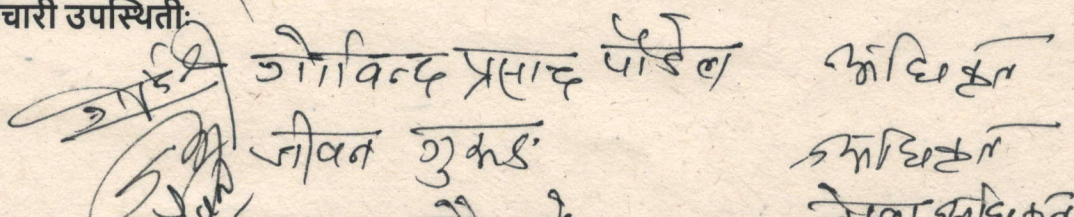 चारी उपस्थितीः
गोविन्द प्रसाद पौडेल अधिकृत
जीवन गुरुङ अधिकृत